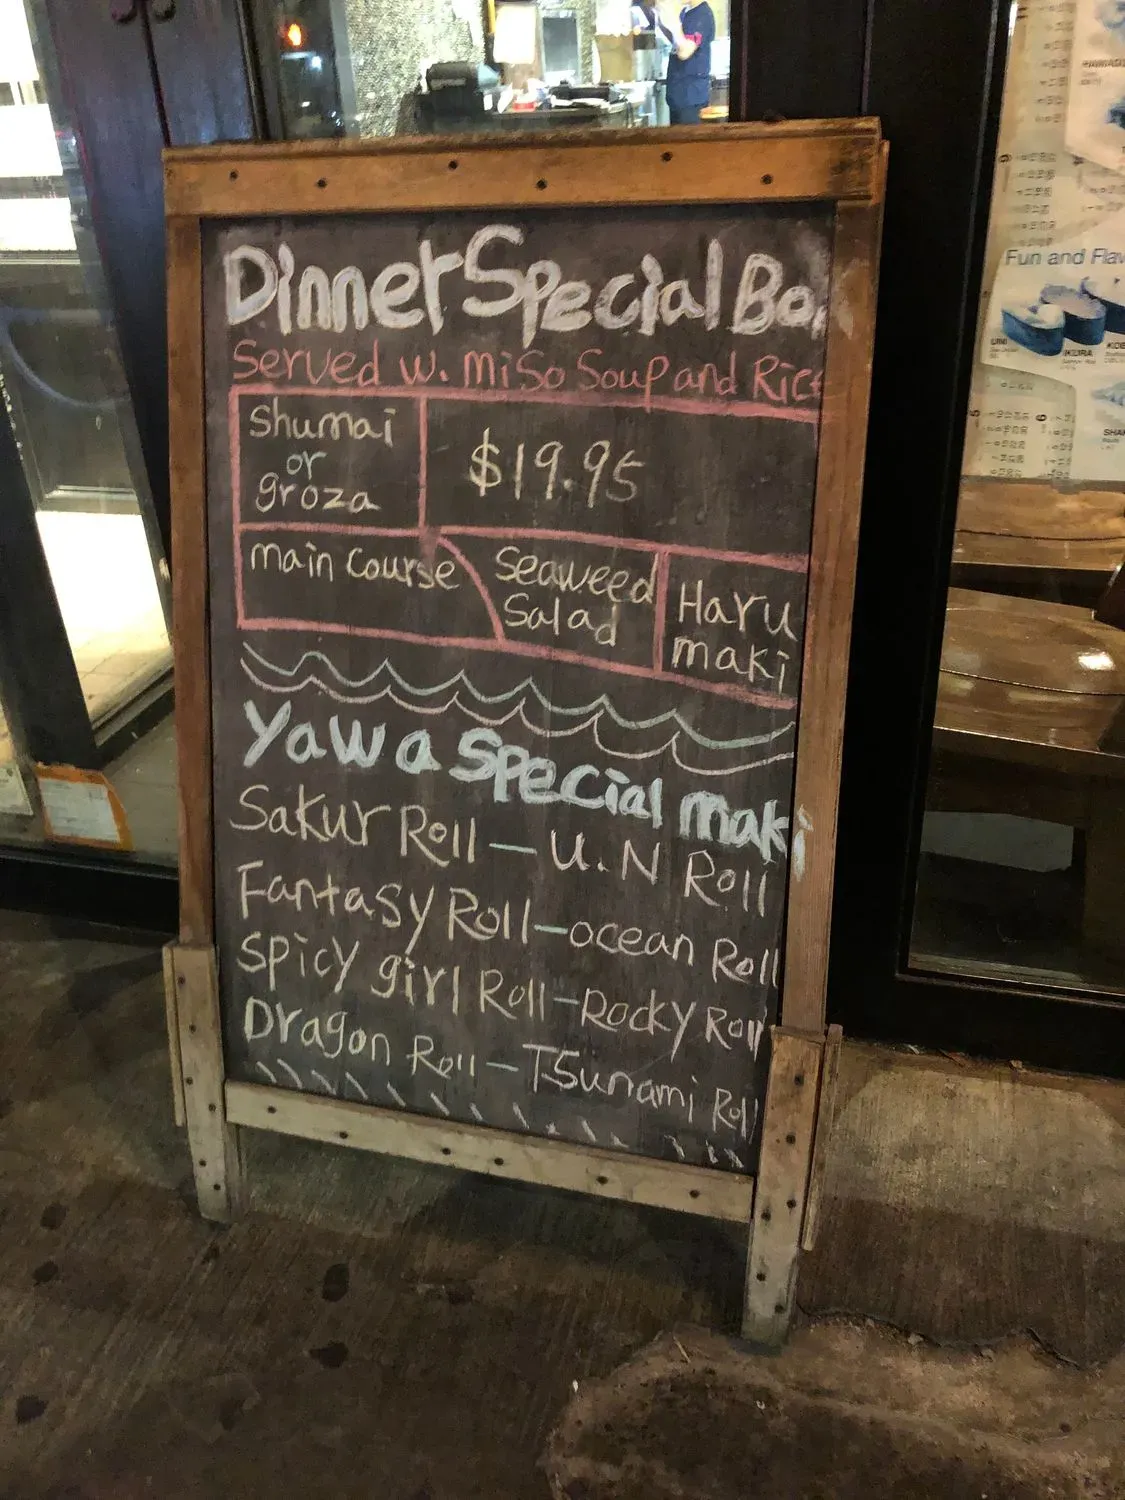 Dinner Special Bo
Served w. Miso Soup and Rice
Shumai
or
groza
$19.95
main course
Seaweed
Salad
Haru
maki
Yawa special maki
Sakur Roll — U.N Roll
Fantasy Roll — ocean Roll
Spicy girl Roll — Rocky Roll
Dragon Roll — Tsunami Roll
Fun and Flav
UNI
IKURA
KOB
SHA